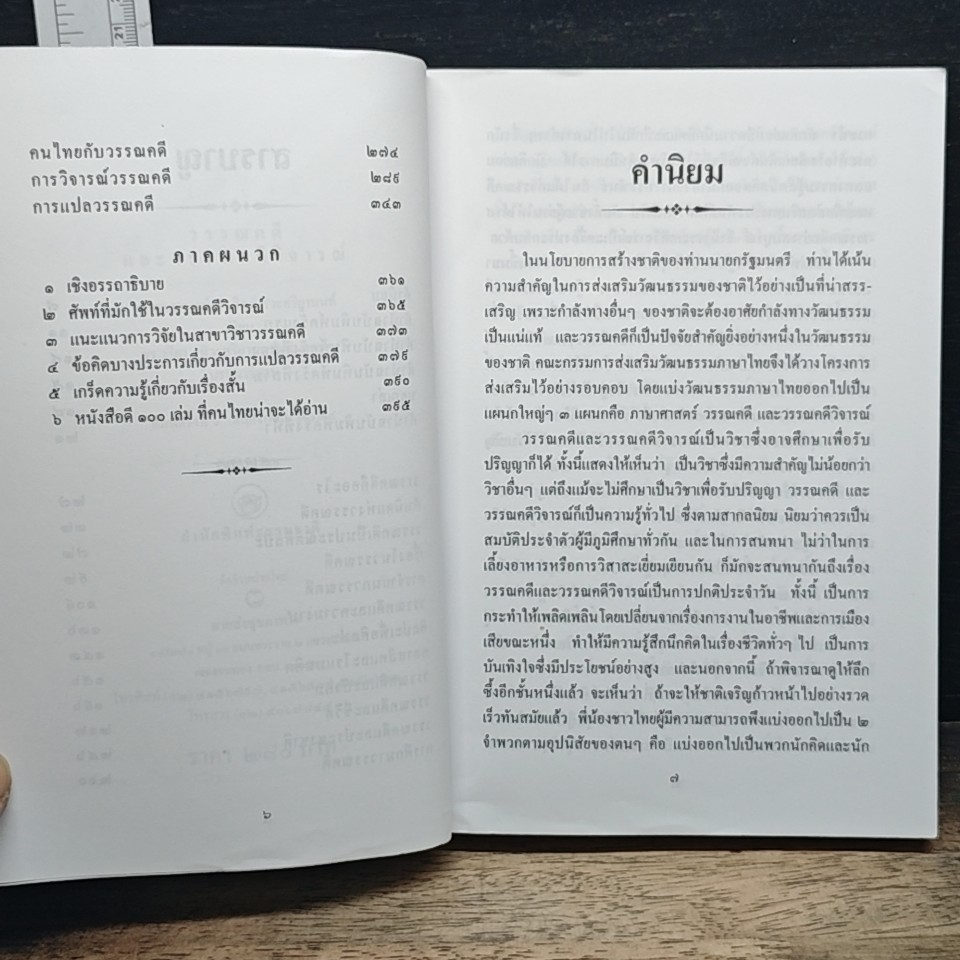 คนไทยกับวรรณคดี ๒๗๔
การวิจารณ์วรรณคดี ๒๘๙
การแปลวรรณคดี ๓๔๓
ภาคผนวก
๑ เชิงอรรถาธิบาย ๓๖๑
๒ ศัพท์ที่มักใช้ในวรรณคดีวิจารณ์ ๓๖๕
๓ แนะแนวการวิจัยในสาขาวิชาวรรณคดี ๓๗๓
๔ ข้อคิดบางประการเกี่ยวกับการแปลวรรณคดี ๓๗๙
๕ เกร็ดความรู้เกี่ยวกับเรื่องสั้น ๓๙๐
๖ หนังสือดี ๑๐๐ เล่ม ที่คนไทยน่าจะได้อ่าน ๓๙๕
๖
คำนิยม
ในนโยบายการสร้างชาติของท่านนายกรัฐมนตรี ท่านได้เน้น
ความสำคัญในการส่งเสริมวัฒนธรรมของชาติไว้อย่างเป็นที่น่าสรร-
เสริญ เพราะกำลังทางอื่นๆ ของชาติจะต้องอาศัยกำลังทางวัฒนธรรม
เป็นแน่แท้ และวรรณคดีก็เป็นปัจจัยสำคัญยิ่งอย่างหนึ่งในวัฒนธรรม
ของชาติ คณะกรรมการส่งเสริมวัฒนธรรมภาษาไทยจึงได้วางโครงการ
ส่งเสริมไว้อย่างรอบคอบ โดยแบ่งวัฒนธรรมภาษาไทยออกไปเป็น
แผนกใหญ่ๆ ๓ แผนกคือ ภาษาศาสตร์ วรรณคดี และวรรณคดีวิจารณ์
วรรณคดีและวรรณคดีวิจารณ์เป็นวิชาซึ่งอาจศึกษาเพื่อรับ
ปริญญาก็ได้ ทั้งนี้แสดงให้เห็นว่า เป็นวิชาซึ่งมีความสำคัญไม่น้อยกว่า
วิชาอื่นๆ แต่ถึงแม้จะไม่ศึกษาเป็นวิชาเพื่อรับปริญญา วรรณคดี และ
วรรณคดีวิจารณ์ก็เป็นความรู้ทั่วไป ซึ่งตามสากลนิยม นิยมว่าควรเป็น
สมบัติประจำตัวผู้มีภูมิศึกษาทั่วกัน และในการสนทนา ไม่ว่าในการ
เลี้ยงอาหารหรือการวิสาสะเยี่ยมเยียนกัน ก็มักจะสนทนากันถึงเรื่อง
วรรณคดีและวรรณคดีวิจารณ์เป็นการปกติประจำวัน ทั้งนี้ เป็นการ
กระทำให้เพลิดเพลินโดยเปลี่ยนจากเรื่องการงานในอาชีพและการเมือง
เสียขณะหนึ่ง ทำให้มีความรู้สึกนึกคิดในเรื่องชีวิตทั่วๆ ไป เป็นการ
บันเทิงใจซึ่งมีประโยชน์อย่างสูง และนอกจากนี้ ถ้าพิจารณาดูให้ลึก
ซึ้งอีกชั้นหนึ่งแล้ว จะเห็นว่า ถ้าจะให้ชาติเจริญก้าวหน้าไปอย่างรวด
เร็วทันสมัยแล้ว พี่น้องชาวไทยผู้มีความสามารถพึงแบ่งออกไปเป็น ๒
จำพวกตามอุปนิสัยของตนๆ คือ แบ่งออกไปเป็นพวกนักคิดและนัก
๗